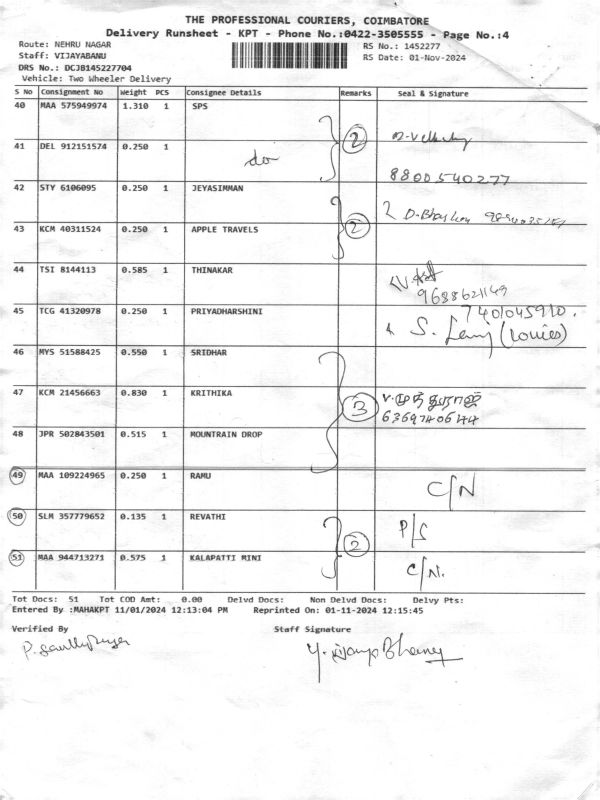 THE PROFESSIONAL COURIERS, COIMBATORE
Delivery Runsheet - KPT - Phone No.:0422-3505555 - Page No.:4
Route: NEHRU NAGAR RS No.: 1452277
Staff: VIJAYABANU RS Date: 01-Nov-2024
DRS No.: DCJB145227704
Vehicle: Two Wheeler Delivery
S No Consignment No Weight PCS Consignee Details Remarks Seal & Signature
40 MAA 575949974 1.310 1 SPS
2
41 DEL 912151574 0.250 1 do
8800540277
42 STY 6106095 0.250 1 JEYASIMMAN
2
43 KCM 40311524 0.250 1 APPLE TRAVELS
44 TSI 8144113 0.585 1 THINAKAR
9688621149
45 TCG 41320978 0.250 1 PRIYADHARSHINI 7401045910.
46 MYS 51588425 0.550 1 SRIDHAR
47 KCM 21456663 0.830 1 KRITHIKA 3
6369740644
48 JPR 502843501 0.515 1 MOUNTRAIN DROP
49 MAA 109224965 0.250 1 RAMU C/N
50 SLM 357779652 0.135 1 REVATHI P/S
2
51 MAA 944713271 0.575 1 KALAPATTI MINI C/N.
Tot Docs: 51 Tot COD Amt: 0.00 Delvd Docs: Non Delvd Docs: Delvy Pts:
Entered By :MAHAKPT 11/01/2024 12:13:04 PM Reprinted On: 01-11-2024 12:15:45
Verified By Staff Signature